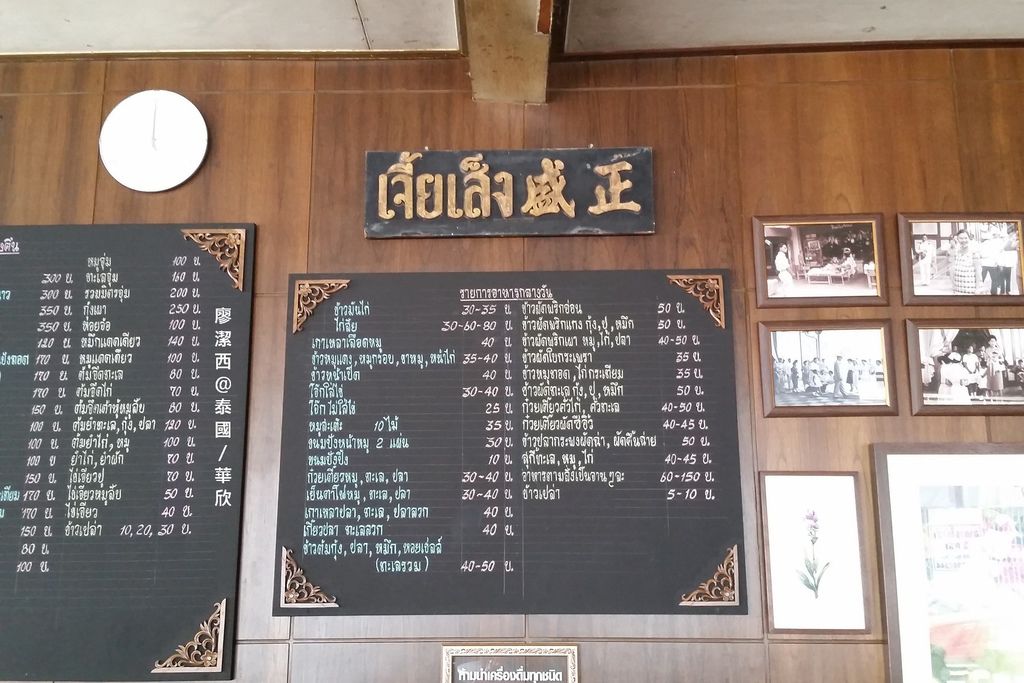 เจี้ยเส็ง盛正
หมูตุ๋น 100 บ.
300 บ. ทะเลตุ๋น 150 บ.
300 บ. รวมมิตรตุ๋น 200 บ.
350 บ. กุ้งเผา 250 บ.
350 บ. หอยจ้อ 100 บ.
120 บ. หมึกแดดเดียว 140 บ.
170 บ. หมูแดดเดียว 100 บ.
170 บ. ต้มจืดทะเล 80 บ.
170 บ. ต้มจืดไก่ 70 บ.
150 บ. ต้มจืดเต้าหู้หมูสับ 80 บ.
100 บ. ต้มยำทะเล, กุ้ง, ปลา 120 บ.
100 บ. ต้มยำไก่, หมู 100 บ.
100 บ ยำไก่, ยำผัก 70 บ.
150 บ. ไข่เจียวปู 70 บ.
170 บ. ไข่เจียวหมูสับ 50 บ.
170 บ. ไข่เจียว 40 บ.
150 บ. ข้าวเปล่า 10, 20, 30 บ.
80 บ.
100 บ.
廖潔西@泰國/華欣
รายการอาหารกลางวัน
ข้าวมันไก่ 30-35 บ.
ไก่สับ 30-60-80 บ.
เกาเหลาเลือดหมู 40 บ.
ข้าวหมูแดง, หมูกรอบ, ขาหมู, หน้าไก่ 35-40 บ.
ข้าวหน้าเป็ด 40 บ.
โจ๊กใส่ไข่ 30-40 บ.
โจ๊กไม่ใส่ไข่ 25 บ.
หมูสะเต๊ะ 10 ไม้ 35 บ.
ขนมปังหน้าหมู 2 แผ่น 30 บ.
ขนมปังปิ้ง 10 บ.
ก๋วยเตี๋ยวหมู, ทะเล, ปลา 30-40 บ.
เย็นตาโฟหมู, ทะเล, ปลา 30-40 บ.
เกาเหลาปลา, ทะเล, ปลาลวก 40 บ.
เกี๊ยวปลา ทะเลลวก 40 บ.
ข้าวต้มกุ้ง, ปลา, หมึก, หอยเชลล์
(ทะเลรวม) 40-50 บ.
ข้าวผัดพริกอ่อน 50 บ.
ข้าวผัดพริกแกง กุ้ง, ปู, หมึก 50 บ.
ข้าวผัดพริกเผา หมู, ไก่, ปลา 40-50 บ.
ข้าวผัดใบกะเพรา 35 บ.
ข้าวหมูทอด, ไก่กระเทียม 35 บ.
ข้าวผัดทะเล กุ้ง, ปู, หมึก 50 บ.
ก๋วยเตี๋ยวคั่วไก่, คั่วทะเล 40-50 บ.
ก๋วยเตี๋ยวผัดซีอิ๊ว 40-45 บ.
ข้าวปลากระพงผัดฉ่า, ผัดคื่นฉ่าย 50 บ.
สุกี้ทะเล, หมู, ไก่ 40-45 บ.
อาหารตามสั่งเป็นจานๆละ 60-150 บ.
ข้าวเปล่า 5-10 บ.
ห้ามนำเครื่องดื่มทุกชนิด